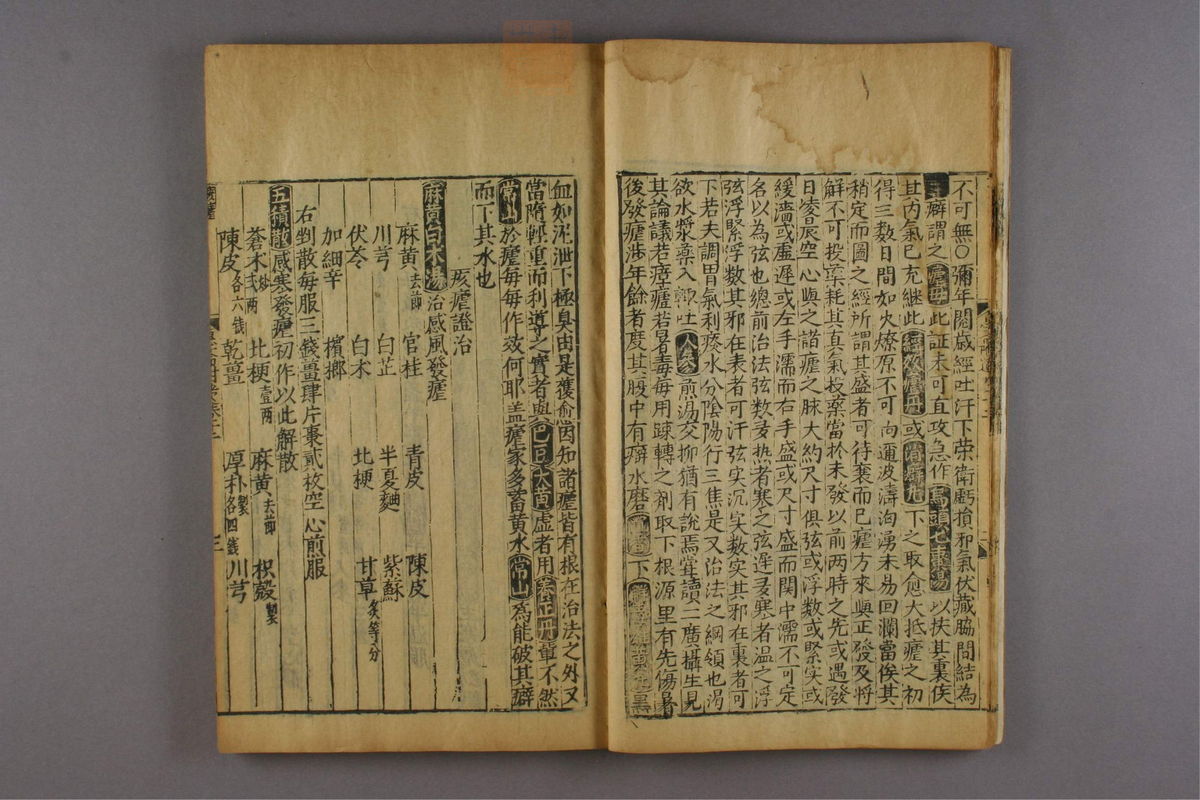 不可無○彌年閱歲經吐汗下荣衛虧損邪氣伏藏脇間結為
癖謂之瘧母此証未可直攻急作烏頭七棗湯以扶其裏俟
其内氣已充継此經效瘧丹或消癖丸下之取愈大抵瘧之初
得三数日間如火燎原不可向邇波濤洶湧未易回瀾當俟其
稍定而圖之經所謂其盛者可待衰而已瘧方來與正發及將
解不可投藥耗其真氣投藥當於未發以前两時之先或遇發
日凌晨空心與之諸瘧之脉大約尺寸俱弦或浮数或緊实或
緩濇或虚遲或左手濡而右手盛或尺寸盛而関中濡不可定
名以為弦也總前治法弦数多热者寒之弦遲多寒者温之浮
弦浮緊浮数其邪在表者可汗弦实沉实数实其邪在裏者可
下若夫調胃氣利痰水分陰陽行三焦是又治法之綱領也渴
欲水漿藥入輙吐人參煎湯交柳猶有說焉甞讀二廣攝生見
其論議若瘴瘧若暑毒每用踈轉之剂取下根源里有先傷暑
後發瘧涉年餘者度其腹中有癖水磨下黑
血如泥泄下極臭由是獲愈因知諸瘧皆有根在治法之外又
當隋輕重而利導之實者與巴豆大黃虚者用養正丹董不然
常山於瘧每每作效何耶盖瘧家多蓄黄水常山為能破其癖
而下其水也
痎瘧證治
麻黄白术湯治感風發瘧
麻黄去節 官桂 青皮 陳皮
川芎 白芷 半夏麯 紫蘇
伏苓 白术 北梗 甘草炙等分
加細辛 檳榔
右剉散每服三錢薑肆片棗貳枚空心煎服
五積散感寒發瘧初作以此解散
蒼术炒弍两 北梗壹两 麻黄去節 枳殼製
陳皮各六錢 乾薑 厚朴製各四錢 川芎